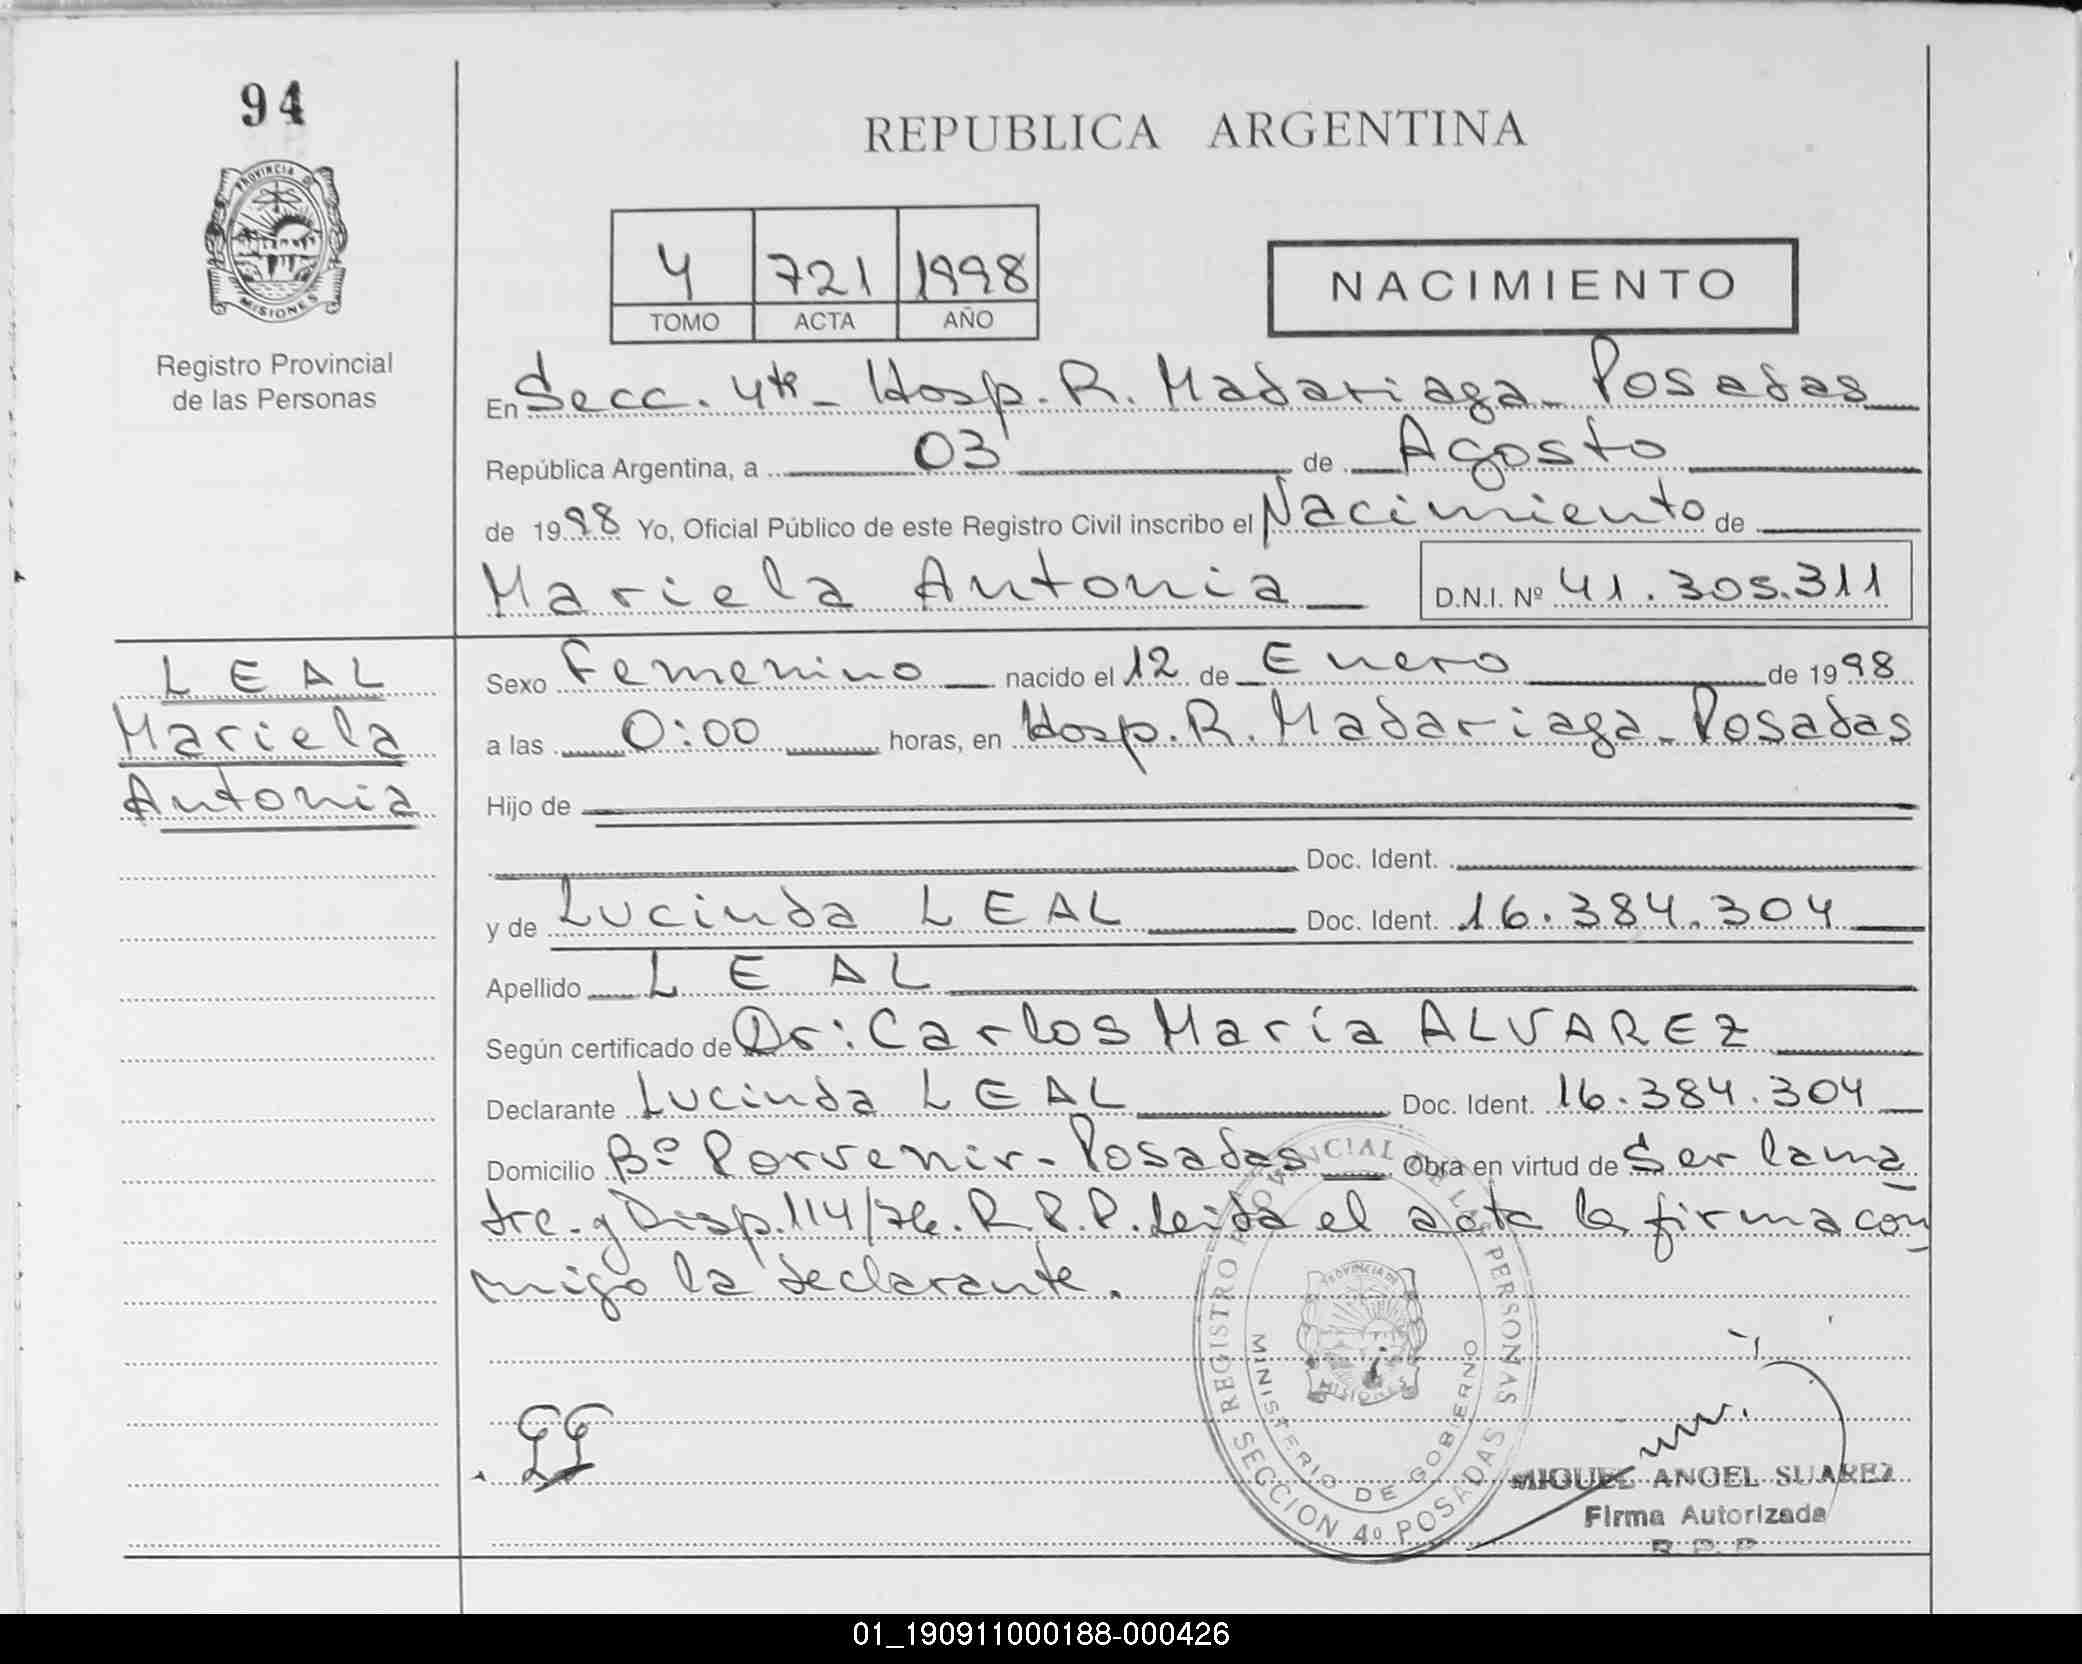 94
PROVINCIA DE
MISIONES
Registro Provincial
de las Personas
REPUBLICA ARGENTINA
4 721 1998
TOMO ACTA AÑO
NACIMIENTO
En Secc. 4ta - Hosp. R. Madariaga - Posadas
República Argentina, a 03 de Agosto
de 1998 Yo, Oficial Público de este Registro Civil inscribo el Nacimiento de
Mariela Antonia D.N.I. Nº 41.305.311
LEAL
Mariela
Antonia
Sexo Femenino nacido el 12 de Enero de 1998
a las 0:00 horas, en Hosp. R. Madariaga - Posadas
Hijo de
Doc. Ident.
y de Lucinda LEAL Doc. Ident. 16.384.304
Apellido LEAL
Según certificado de Dr: Carlos María ALVAREZ
Declarante Lucinda LEAL Doc. Ident. 16.384.304
Domicilio Bº Porvenir - Posadas Obra en virtud de Ser la ma
dre - y Disp. 114/76. R.P.P. Leida el acta la firma con
migo la declarante.
REGISTRO PROVINCIAL DE LAS PERSONAS
MINISTERIO DE GOBIERNO
PROVINCIA DE
MISIONES
SECCION 4º POSADAS
MIGUEL ANGEL SUAREZ
Firma Autorizada
R. P. P.
01_190911000188-000426